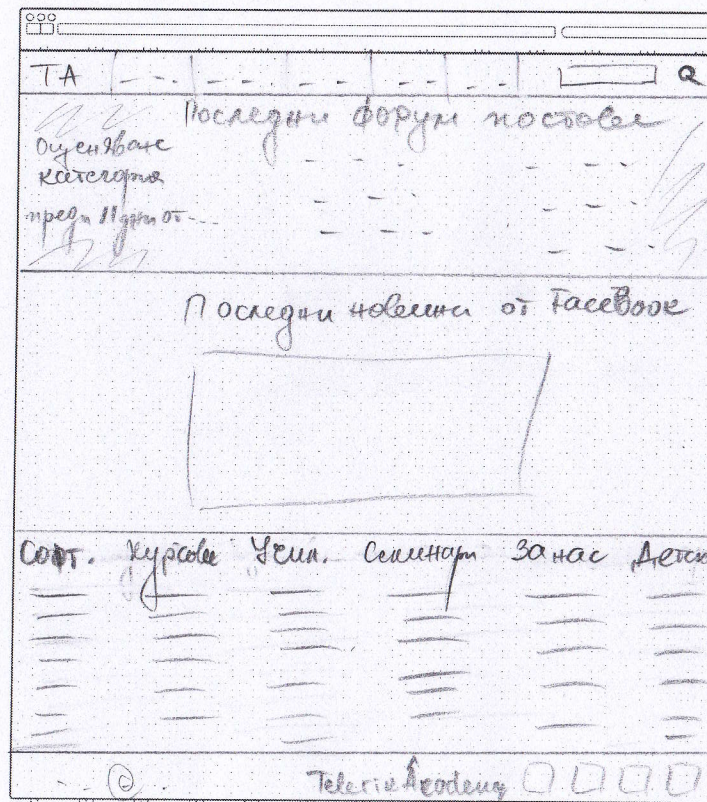 TA
Последни форум постове
Оценяване
категория
преди 11 дни от
Последни новини от FaceBook
Софт. Курсове Учил. Семинари За нас Детск
Telerik Academy